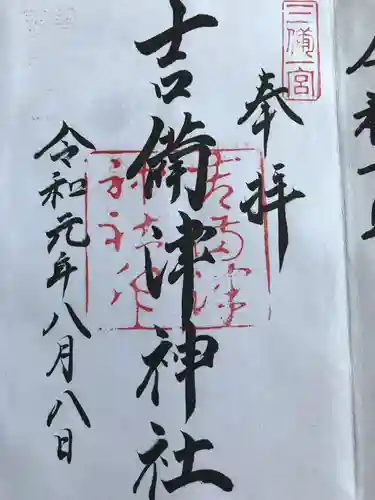 三備一宮
奉拝
吉備津神社
令和元年八月八日